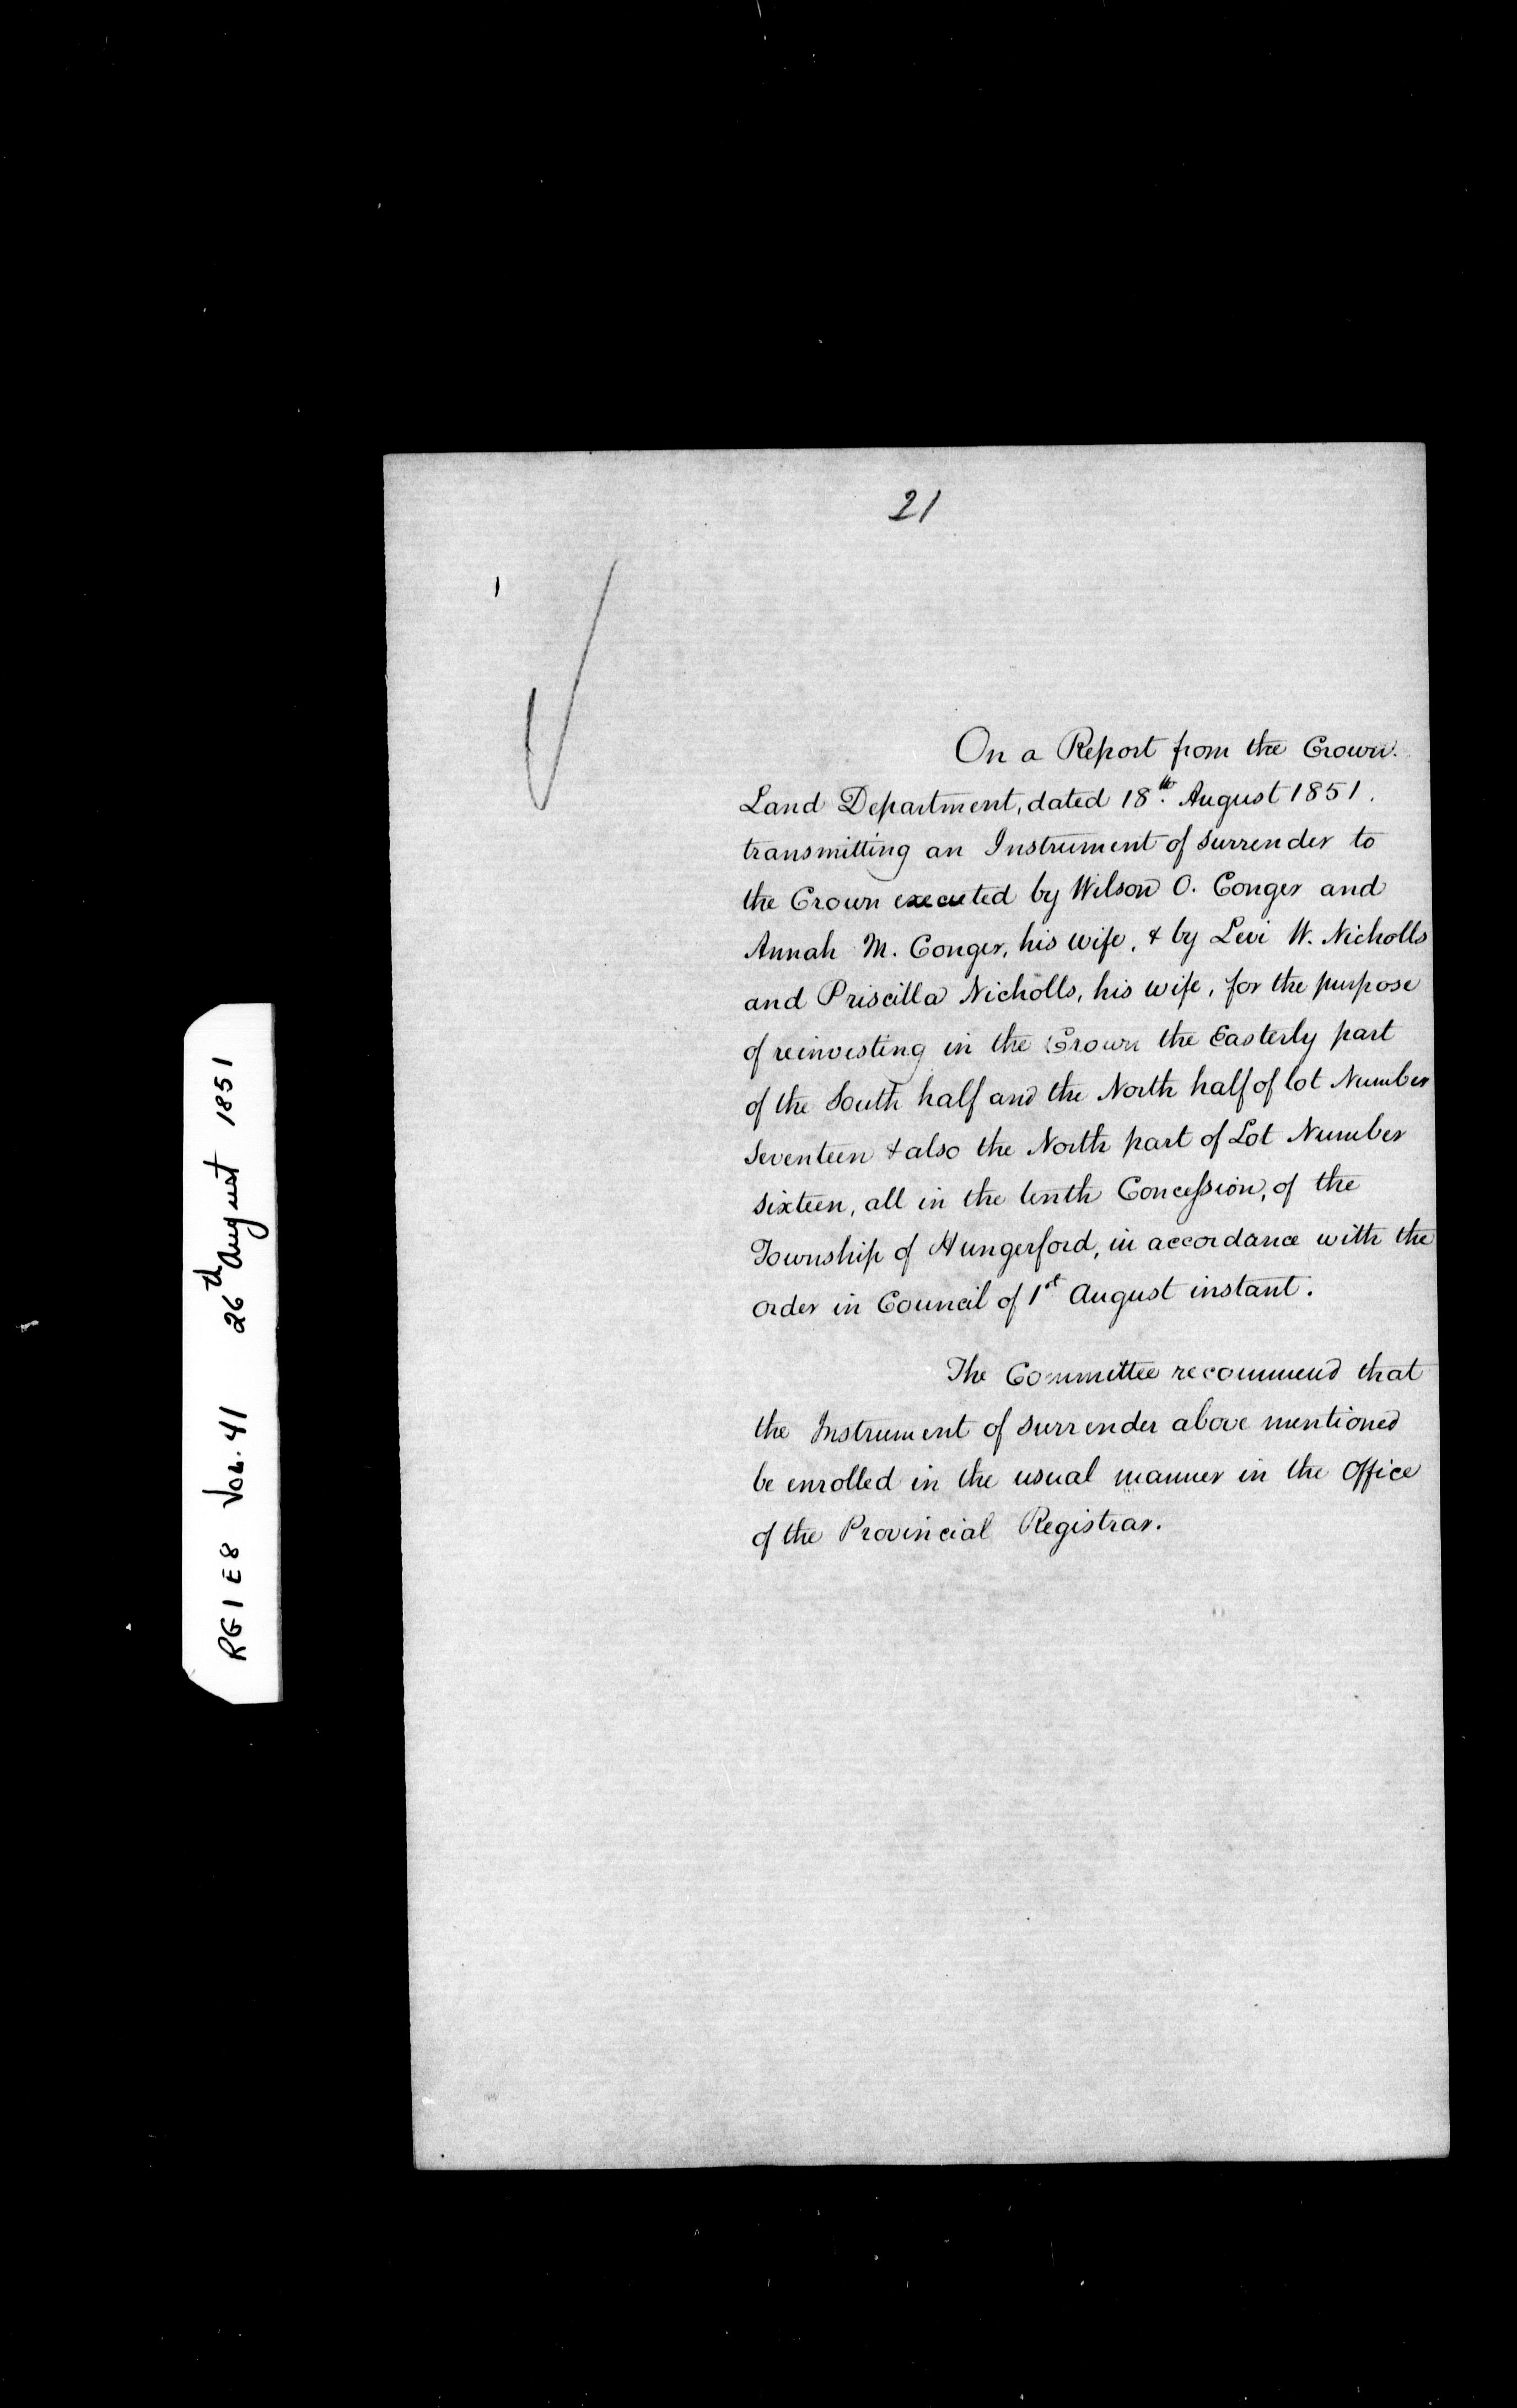 RG 1 E 8 Vol. 41 26th August 1851
21
1
On a Report from the Crown.
Land Department, dated 18th. August 1851.
transmitting an Instrument of surrender to
the Crown executed by Wilson O. Conger and
Annah M. Conger, his wife, & by Levi W. Nicholls
and Priscilla Nicholls, his wife, for the purpose
of reinvesting in the Crown the Easterly part
of the South half and the North half of lot Number
Seventeen & also the North part of Lot Number
sixteen, all in the tenth Concession, of the
Township of Hungerford, in accordance with the
order in Council of 1st August instant.
The Committee recommend that
the Instrument of surrender above mentioned
be enrolled in the usual manner in the Office
of the Provincial Registrar.